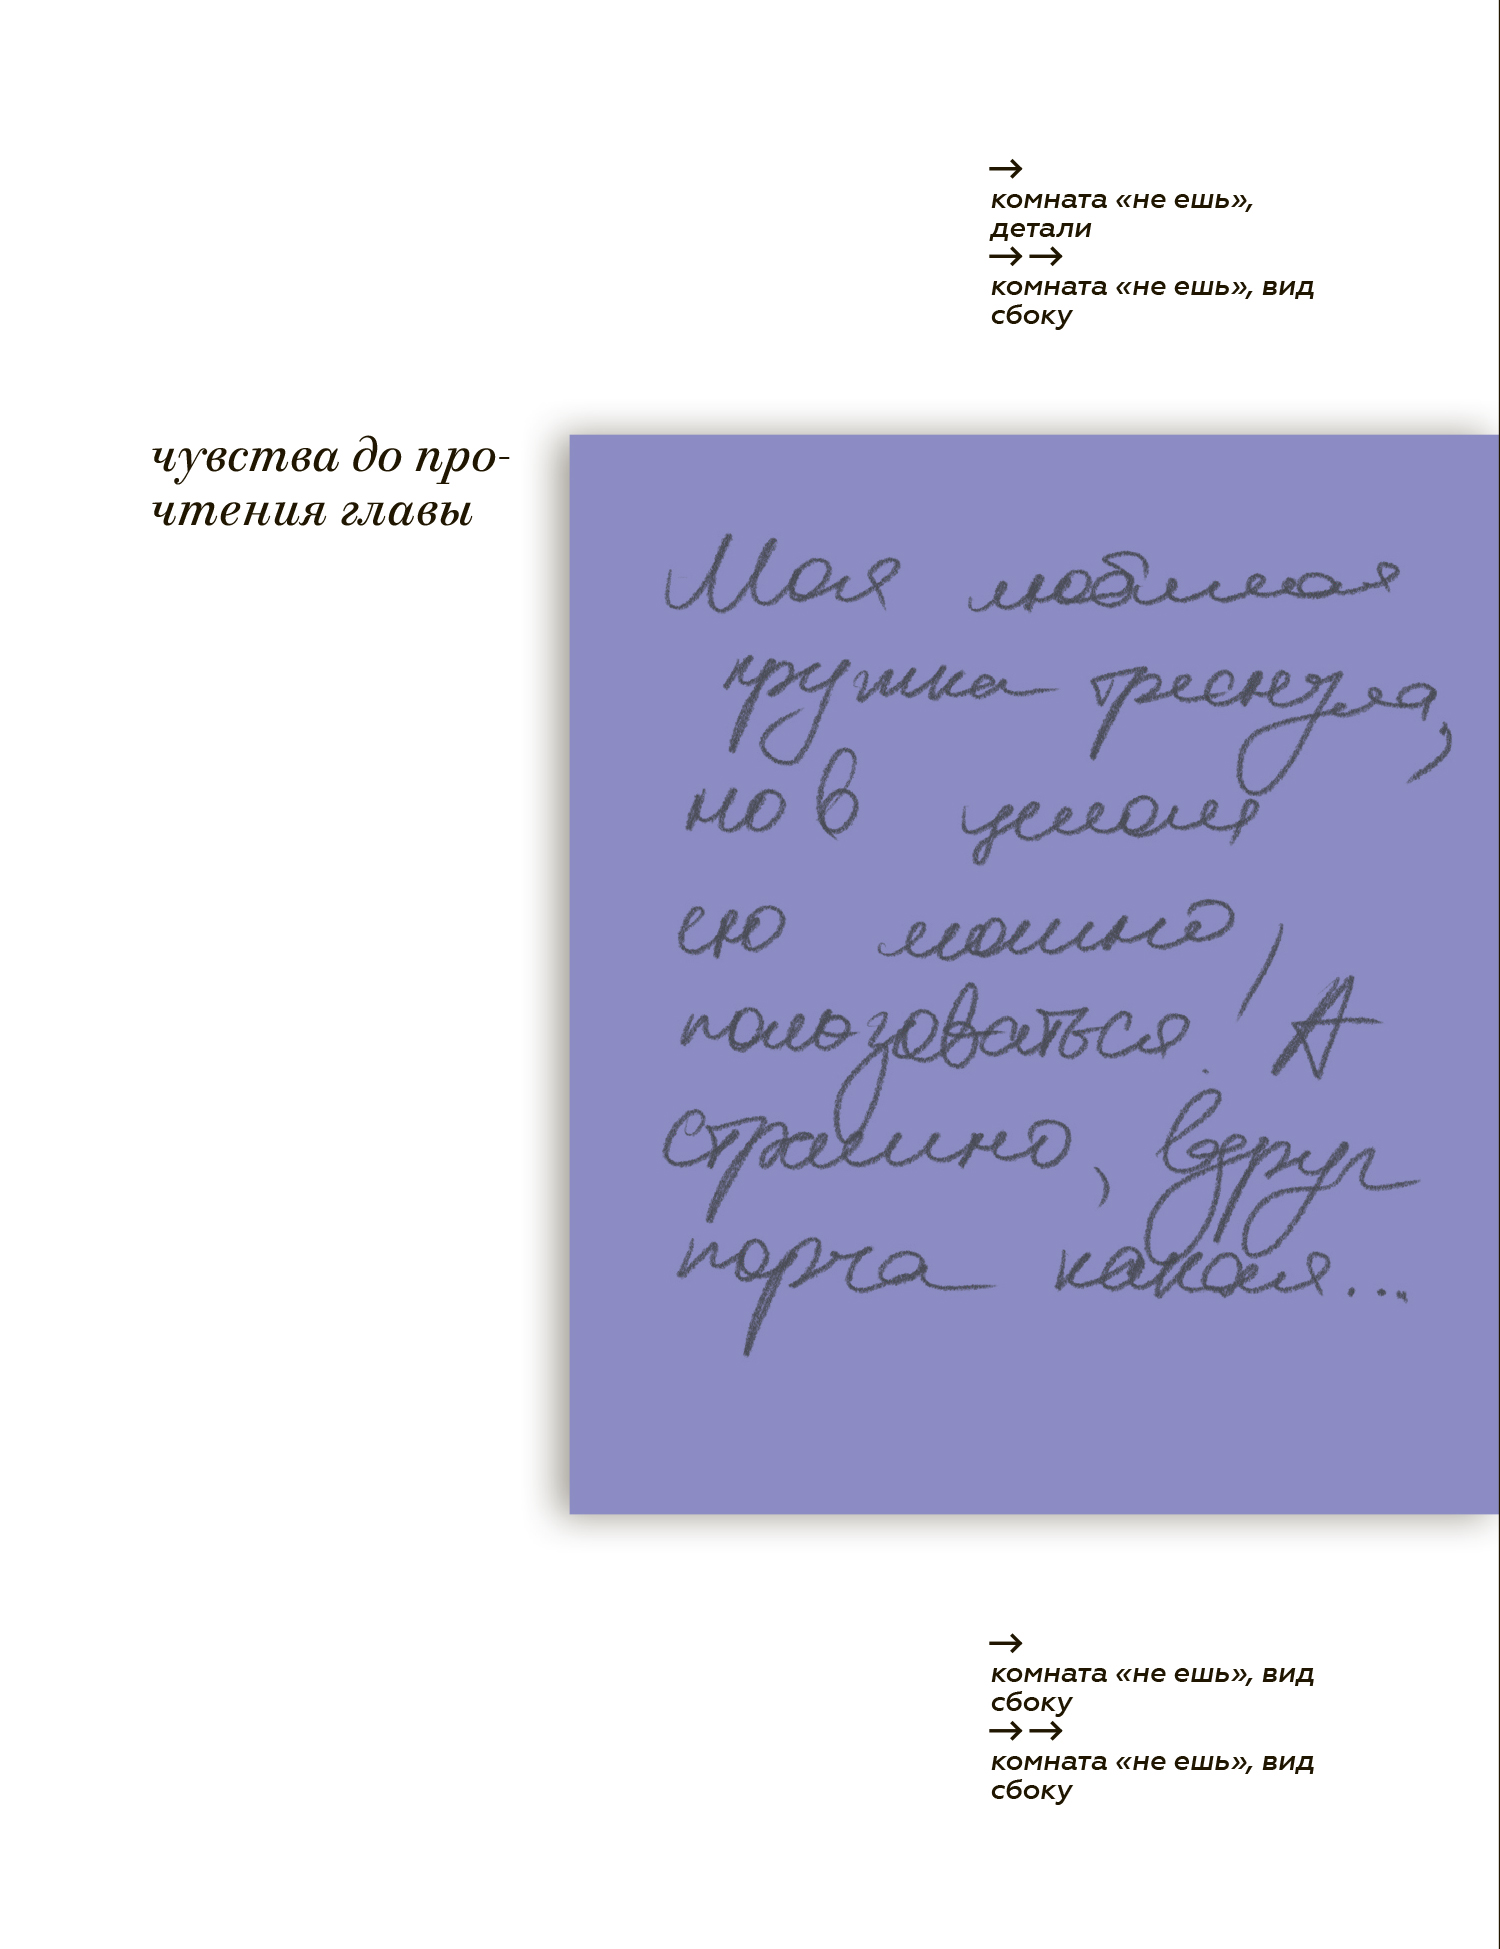 →
комната «не ешь»,
детали
→→
комната «не ешь», вид
сбоку
чувства до про-
чтения главы
Моя любимая
кружка треснула,
но в целом
ею можно
пользоваться! А
страшно, вдруг
порча какая...
→
комната «не ешь», вид
сбоку
→→
комната «не ешь», вид
сбоку